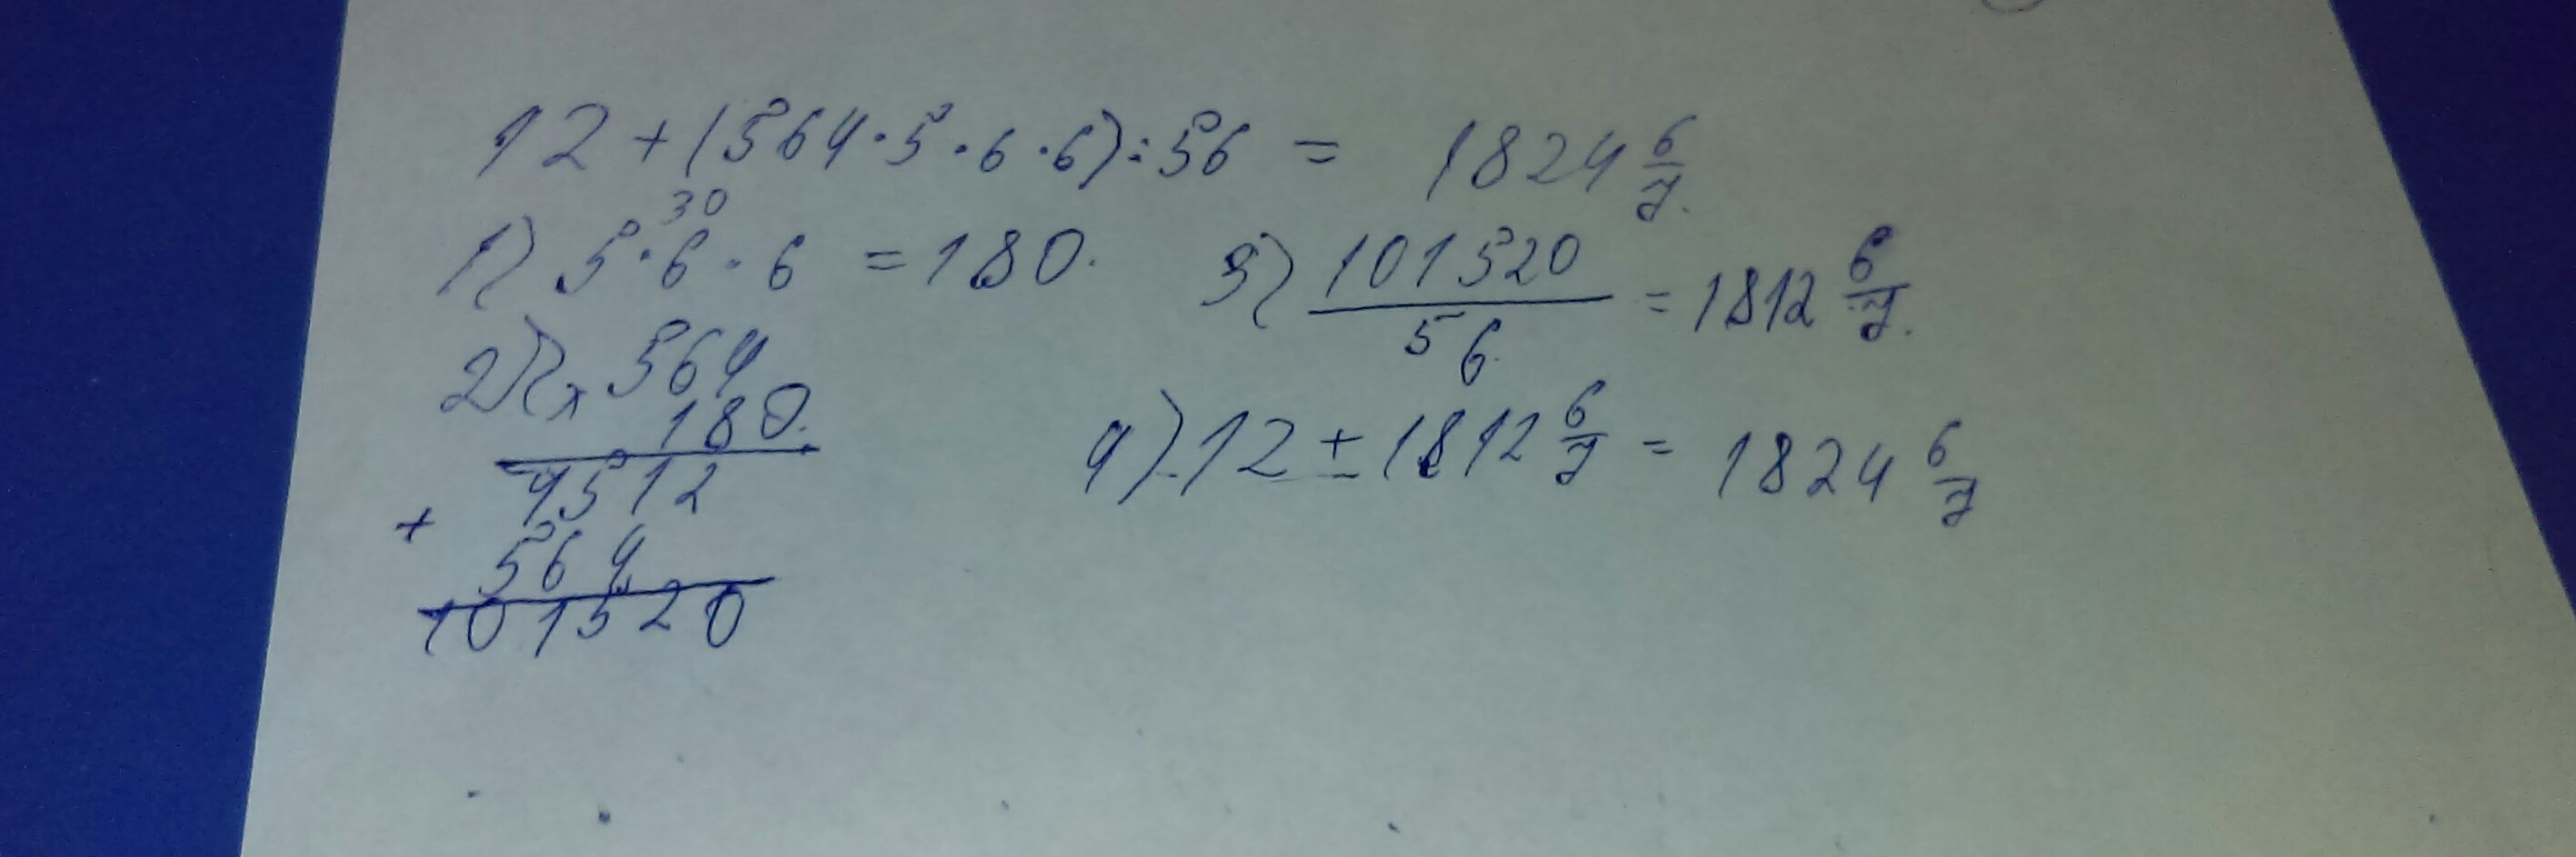 12 + (564 · 5 · 6 · 6) : 56 = 1824 6/7.
30
1) 5 · 6 · 6 = 180.
2) × 564
180.
4512
+
564
101520
3) 101520/56. = 1812 6/7.
4) 12 + 1812 6/7 = 1824 6/7